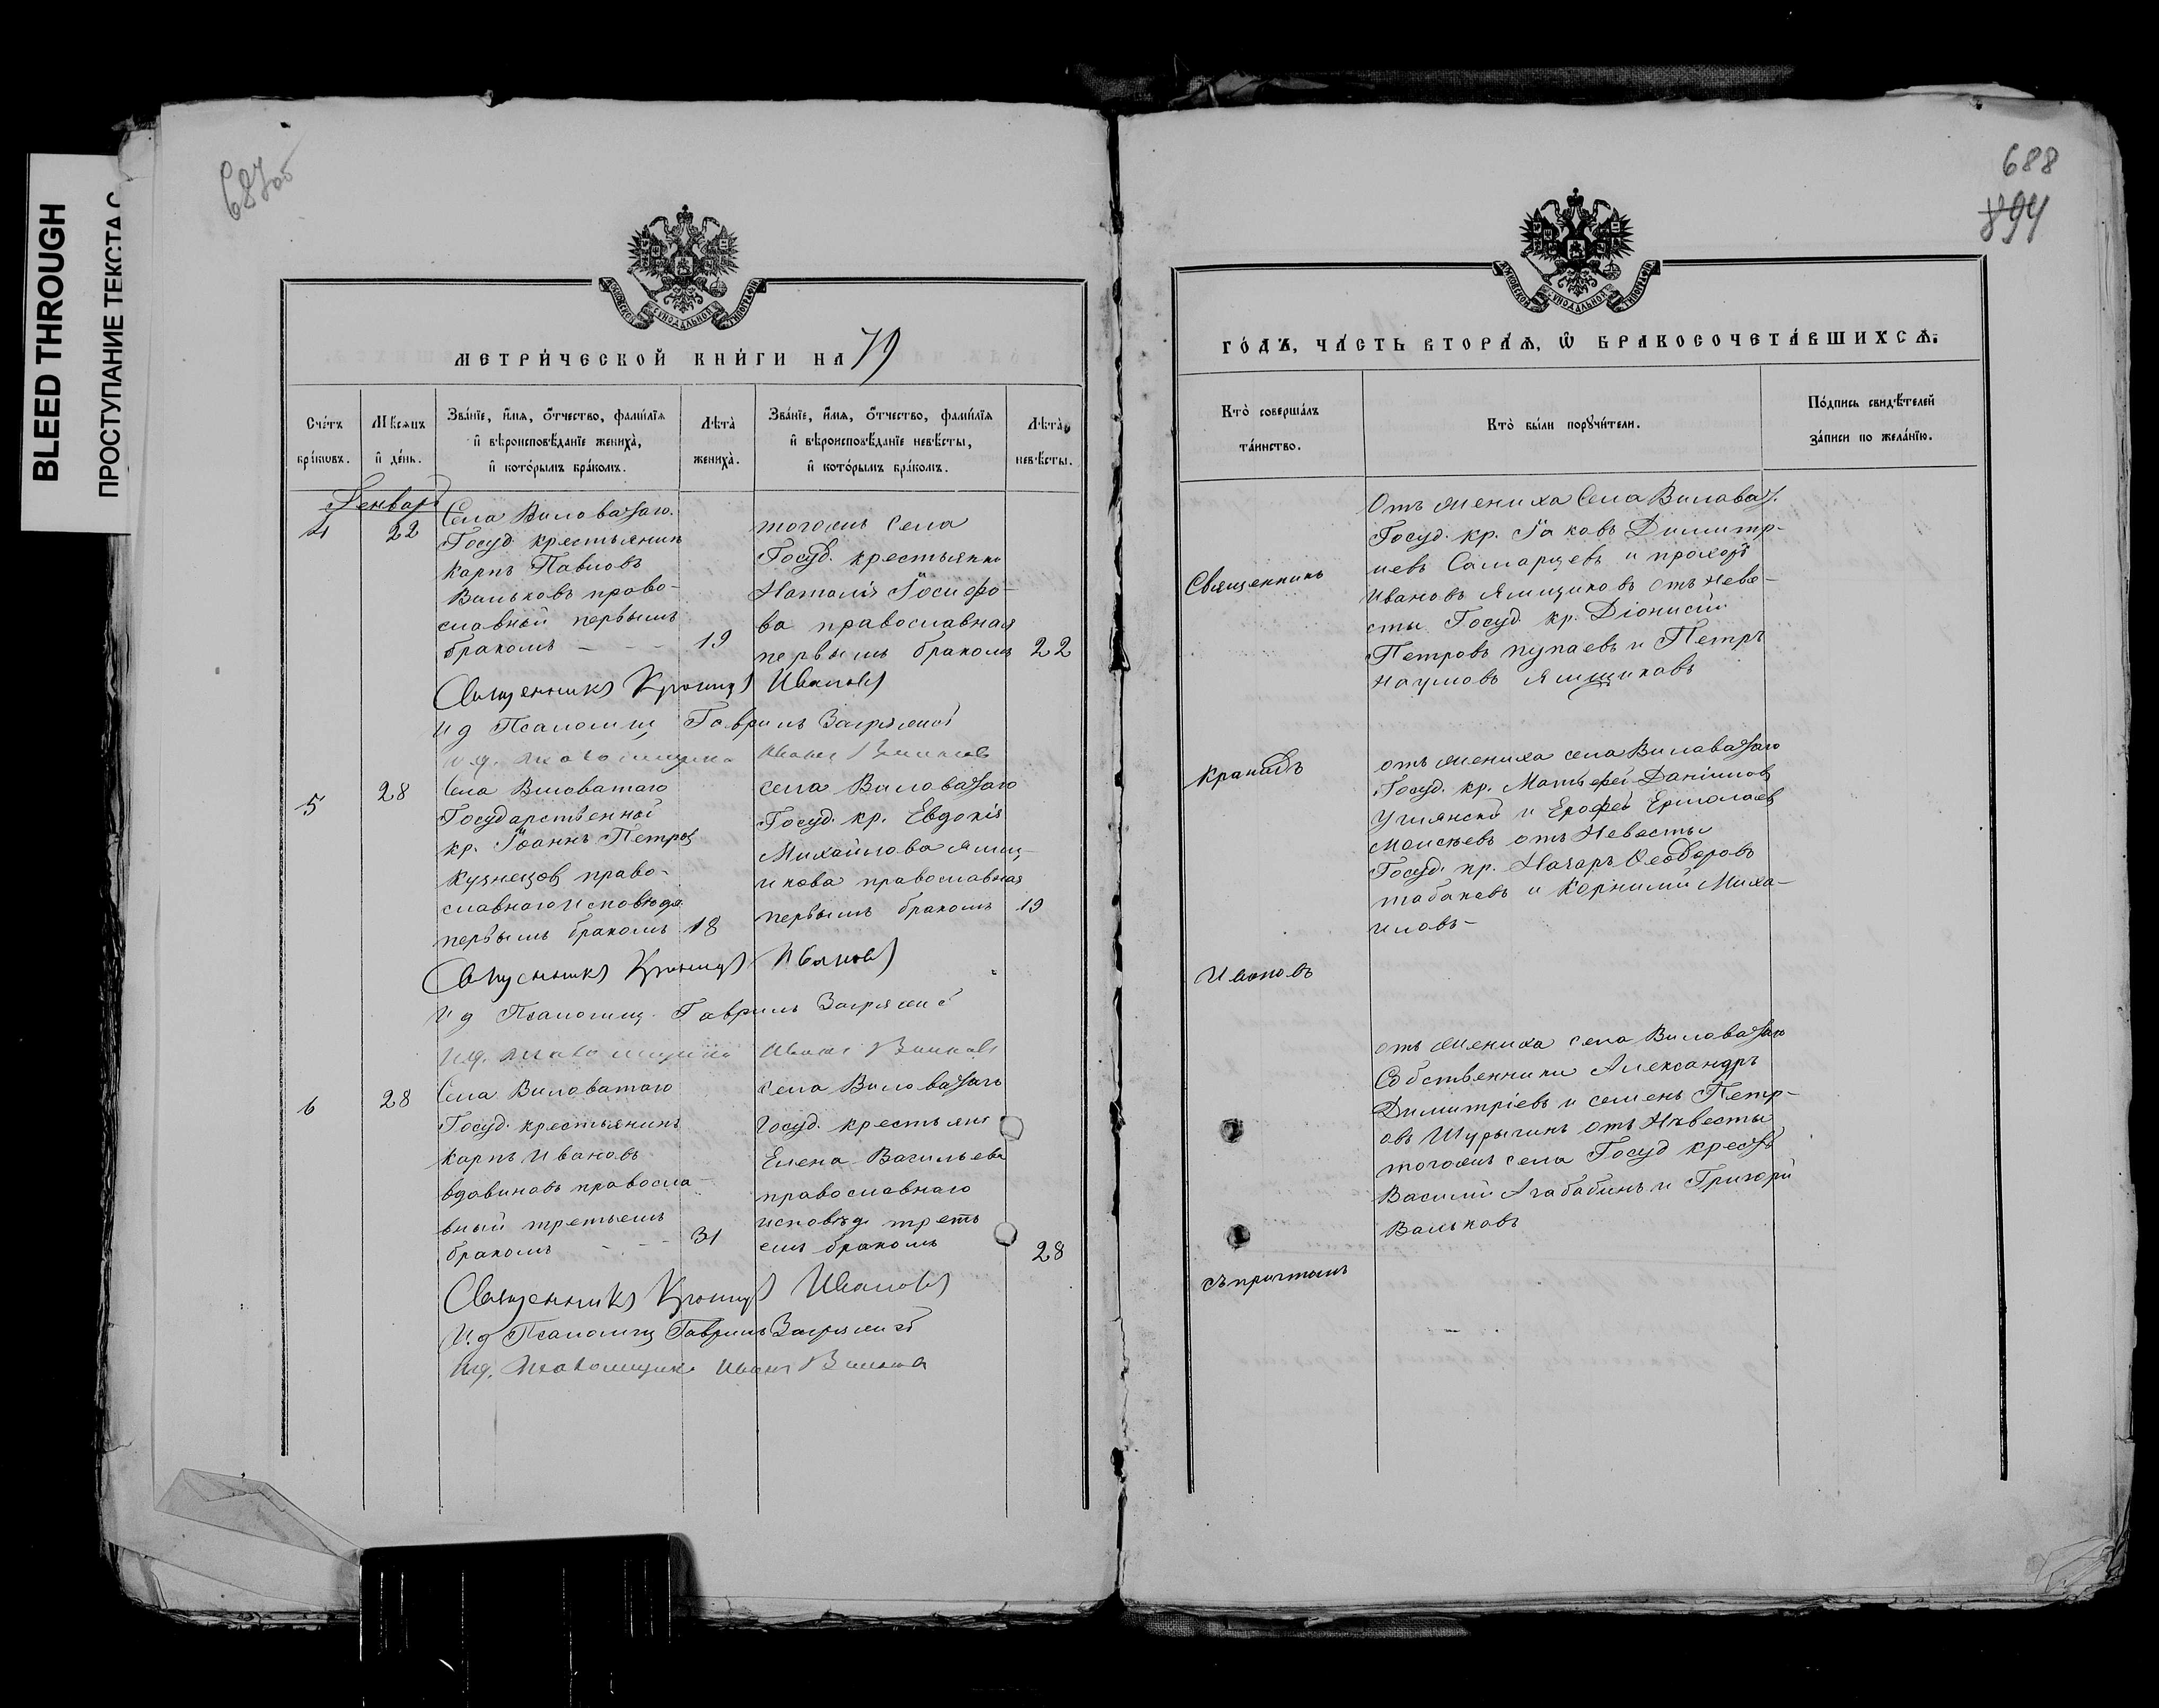 BLEED THROUGH
ПРОСТУПАНИЕ ТЕКСТА С
687об
МОСКОВСКОЙ СѴНОДАЛЬНОЙ ТИПОГРАФІИ
МЕТРИ́ЧЕСКОЙ КНИ́ГИ НА 79
Сче́тъ бра́кωвъ.
Мѣ́сяцъ и҆ де́нь.
Зва́нїе, и҆́мя, ѻ҆́тчество, фами́лїя
и҆ вѣроисповѣ́данїе жениха̀,
и҆ кото́рымъ бра́комъ.
Лѣта̀ жениха̀.
Зва́нїе, и҆́мя, ѻ҆́тчество, фами́лїя
и҆ вѣроисповѣ́данїе невѣ́сты,
и҆ кото́рымъ бра́комъ.
Лѣта̀ невѣ́сты.
Генварь
4
22
Села Виловатаго
Госуд. крестьянинъ
Карпъ Павловъ
Вальковъ право-
славный первымъ
бракомъ - - -
19
тогожъ села
Госуд. крестьянка
Наталія Іосифо-
ва православная
первымъ бракомъ
22
Священникъ Иванов
И д Псаломщ Гавриилъ
5
28
Села Виловатаго
Государственной
кр. Іоаннъ Петров
Кузнецов право-
славнаго исповѣда
первымъ бракомъ
18
села Виловатаго
Госуд. кр. Евдокія
Михайлова Ямщ-
икова православная
первымъ бракомъ
19
Священникъ Иванов
И д Псаломщ. Гавриилъ
6
28
Села Виловатаго
Госуд. крестьянинъ
Карпъ Ивановъ
Вдовинъ правосла-
вный третьемъ
бракомъ - - -
31
села Виловатаго
Госуд. крестьян
Елена Васильева
православнаго
исповѣд треть
емъ бракомъ
28
Священникъ Иванов
И.д Псаломщ Гавриилъ
688
894
МОСКОВСКОЙ СѴНОДАЛЬНОЙ ТИПОГРАФІИ
ГО́ДЪ, ЧА́СТЬ ВТОРА́Ѧ, Ѽ БРАКОСОЧЕТА́ВШИХСѦ:
Кто̀ соверша́лъ
та́инство.
Кто̀ бы́ли порꙋчи́тели.
По́дпись свидѣ́телей
за́писи по жела́нїю.
Священникъ
Отъ жениха Села Виловат.
Госуд. кр. Іаковъ Димитр-
іевъ Самарцевъ и прохоръ
Ивановъ Ямщиковъ отъ Неве-
сты Госуд. кр. Діонисій
Петровъ Пупаевъ и Петръ
Наумовъ Ямщиковъ
Кранидъ
отъ жениха села Виловатаго
Госуд. кр. Матьфей Даніилов
и Ерофей Ермолаев
Моисѣевъ отъ Невесты
Госуд. кр. Назаръ Ѳеодоровъ
табаковъ и Корнилий Миха-
иловъ -
Ивановъ
отъ жениха села Виловатаго
Собственники Александръ
Димитріевъ и семенъ Петр-
овъ Шурыгинъ отъ Нѣвесты
тогожъ села Госуд крест
Василій Агабабинъ и Григорій
Вальковъ
съ причтомъ